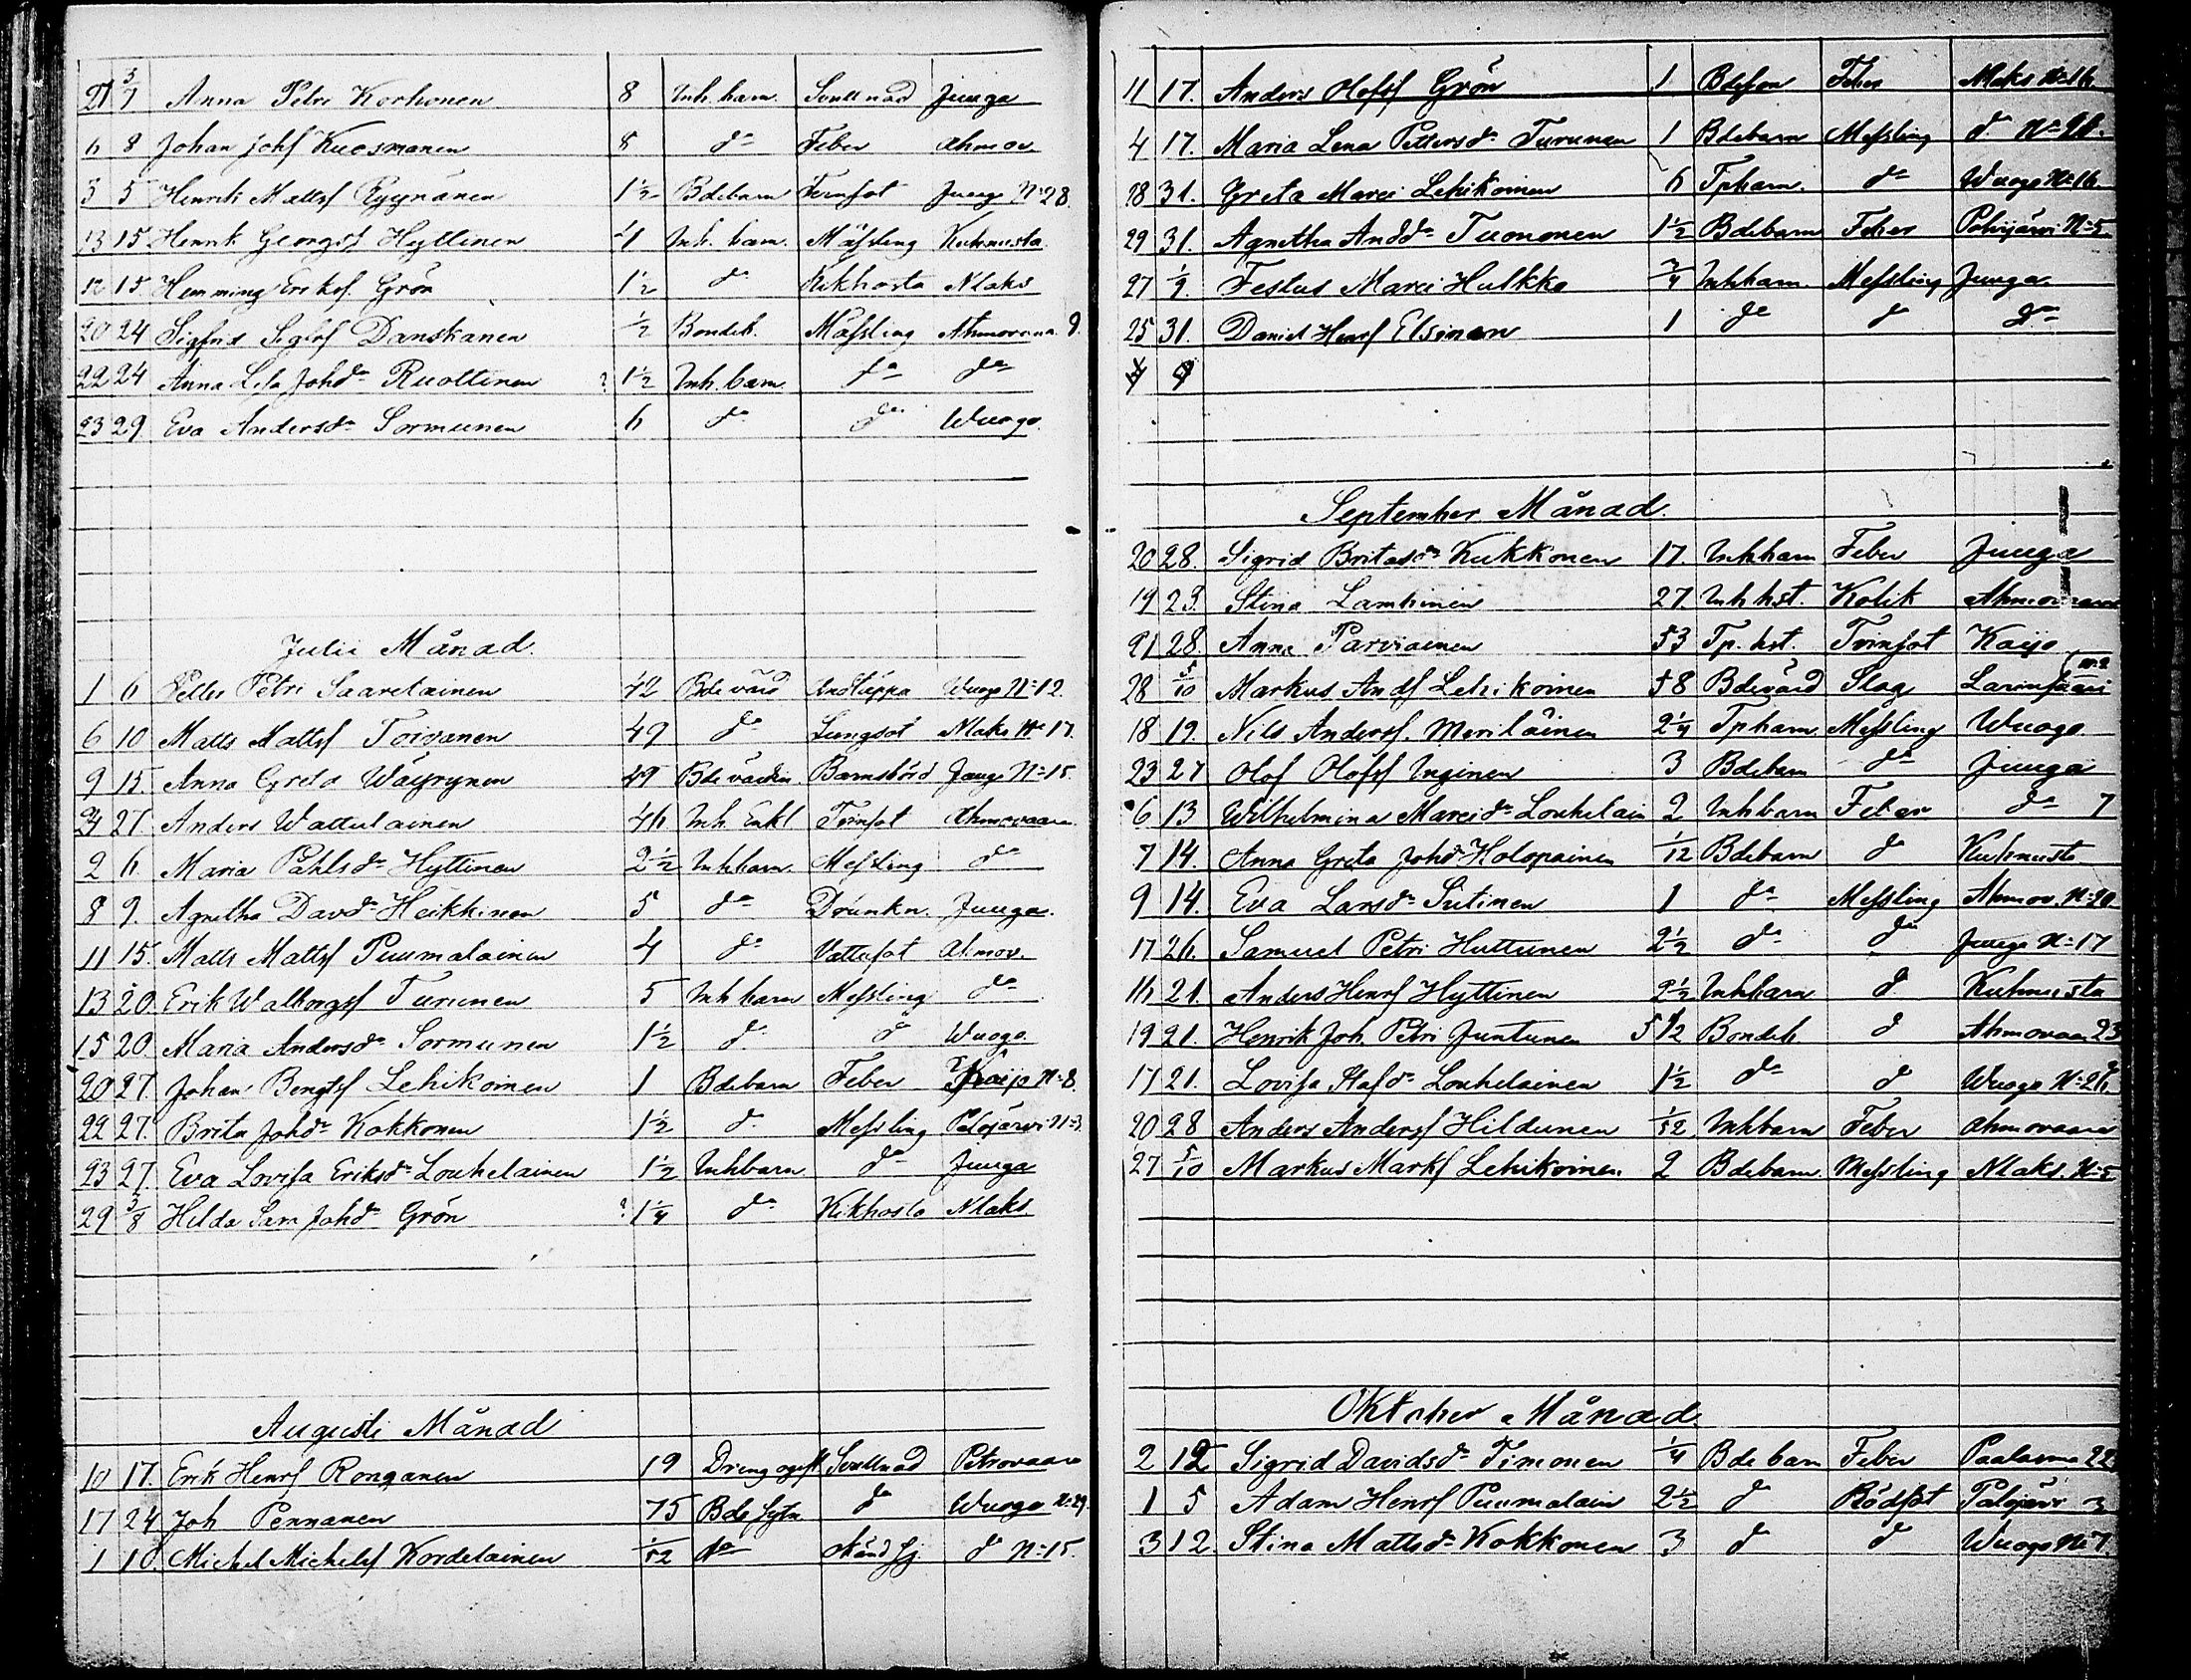 21 3/7 Anna Petri Korhonen 8 Inh. barn. Svullnad Juuga
6 8 Johan Johs Kuosmanen 8 do Feber Ahmov
3 5 Henrik Mattss Ryynänen 1 1/2 Bdebarn Tvinsot Juuga No 28.
13 15 Henrik Georgss Hyttinen 4 Inh. barn. Mässling Kuhnusta
12 15 Hemming Eriks. Grön 1 1/2 do Kikhosta Nlaks
20 24 Sigfrid Sigfss Danskanen 1/2 Bondeb. Mässling Ahmovaara 9.
22 24 Anna Lisa Johdr Ruottinen ? 1 1/2 Inh. barn. do do
23 29 Eva Andersdr Sormunen 6 do do Wuogo.
Julii Månad.
1 6 Petter Petri Saarelainen 42 Bde värd Andtäppa Wuogo No 12.
6 10 Matts Mattss Toivanen 49 do Lungsot Nlaks No 17.
9 15. Anna Greta Wäyrynen 49 Bde värdin Barnsbörd Juuga No 15.
24 27 Anders Wattulainen 46 Inh. Enkl Tvinsot Ahmovaara.
2 6. Maria Påhlsdr Hyttinen 2 1/2 Inhbarn. Messling do
8 9. Agnetha Davdr Heikkinen 5 do Drunkn. Juuga.
11 15. Matts Mattss Puumalainen 4 do Vattusot Ahmov.
13 20. Erik Walborgss Turunen 5 Inhbarn Messling do
15 20. Maria Andersdr Sormunen 1 1/2 do do Wuogo.
20 27. Johan Bengtss Lehikoinen 1 Bdebarn Feber Kaijo No 8.
22 27. Brita Johdr Kokkonen 1 1/2 do Messling Polojärvi No 3.
23 27 Eva Lovisa Eriksdr Louhelainen 1 1/2 Inhbarn do Juuga
29 3/8 Hilda Sara Johdr Grön ? 1 1/4 do Kikhosta Nlaks.
Augusti Månad
10 17. Erik Henrs Ronganen 19 Dreng ogift Svullnad Petrovaara
17 24 Joh Pennanen 75 Bde sytn do Wuogo No 29.
1 10. Michel Michelss Kordelainen 1/52 do okänd sj do No 15.
11 17. Anders Olofss Grön 1 Bdeson Feber Nlaks No 16.
4 17. Maria Lena Pettersdr Turunen 1 Bdebarn Messling do No 26.
28 31. Greta Marci Lehikoinen 6 Tpbarn. do Wuogo No 16
29 31. Agnetha Anddr Tuononen 1 1/2 Bdebarn Feber Polvijärvi No 5
27 1/9. Festus Marci Hulkko 3/4 Inhbarn. Messling Juuga.
25 31. Daniel Henrs Elsinen 1 do do do
September Månad.
26 28. Sigrid Britasdr Kukkonen 17. Inhbarn Feber Juuga
19 23. Stina Lamminen 27. Inh hst. Kolik Ahmovaara
21 28. Anna Parviainen 53 Tp. hst. Tvinsot Kaijo
28 5/10 Markus Ands Lehikoinen 58 Bdevärd Slag Larinsaari
18 19. Nils Anderss. Meriläinen 2 1/4 Tpbarn. Messling Wuogo
23 27 Olof Olofss Inginen 3 Bdebarn do Juuga
6 13 Wilhelmina Marcidr Louhelain 2 Inhbarn Feber do 7
7 14. Anna Greta Johdr Holopainen 1/12 Bdebarn do Kuhnusta
9 14. Eva Larsdr Sutinen 1 do Messling Ahmov. No 20
17 26. Samuel Petri Huttunen 2 1/2 do do Juuga No 17
16 21. Anders Henrs Hyttinen 2 1/2 Inhbarn do Kuhnusta
19 21. Henrik Joh. Petri Juntunen 5 1/2 Bondeb do Ahmovaara 23
17 21. Lovisa Stafdr Louhelainen 1 1/2 do do Wuogo No 26.
20 28 Anders Anderss Hildunen 1/52 Inhbarn Feber Ahmovaara
27 5/10 Markus Marks Lehikoinen 2 Bdebarn. Messling Nlaks. No 5
Oktober Månad.
2 12 Sigrid Davidsdr Timonen 1/4 Bde barn Feber Paalasmaa 22
1 5 Adam Henrs Puumalain 2 1/2 do Rödsot Polojärv 3
3 12. Stina Mattsdr Kokkonen 3 do do Wuogo No 7.